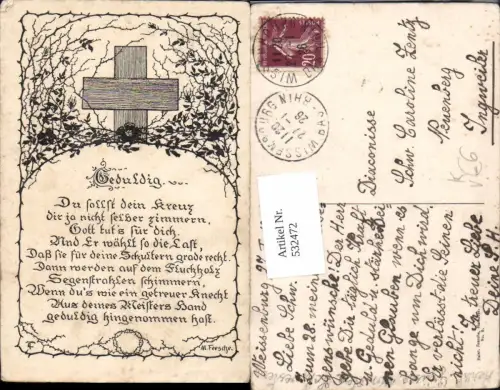 Geduldig.
Du sollst dein Kreuz
dir ja nicht selber zimmern,
Gott tut's für dich.
Und Er wählt so die Last,
Daß sie für deine Schultern grade recht.
Dann werden auf dem Fluchholz
Segenstrahlen schimmern,
Wenn du's wie ein getreuer Knecht
Aus deines Meisters Hand
geduldig hingenommen hast.
M. Feesche.
20
WISSEMBOURG
BAS-RHIN
Diaconisse
Schw. Caroline Lentz
Neuenberg
Ingweiler
Artikel Nr.
532472
Weissenburg 27.
Liebe Schw.
zum 28. meine
Segenswünsche. Der Herr
gebe Dir täglich Kraft
u. Geduld u. stärke Dei-
nen Glauben wenn es
bange um Dich wird.
Er verlässt die Seinen
nicht!
In treuer Liebe
Deine S. H.